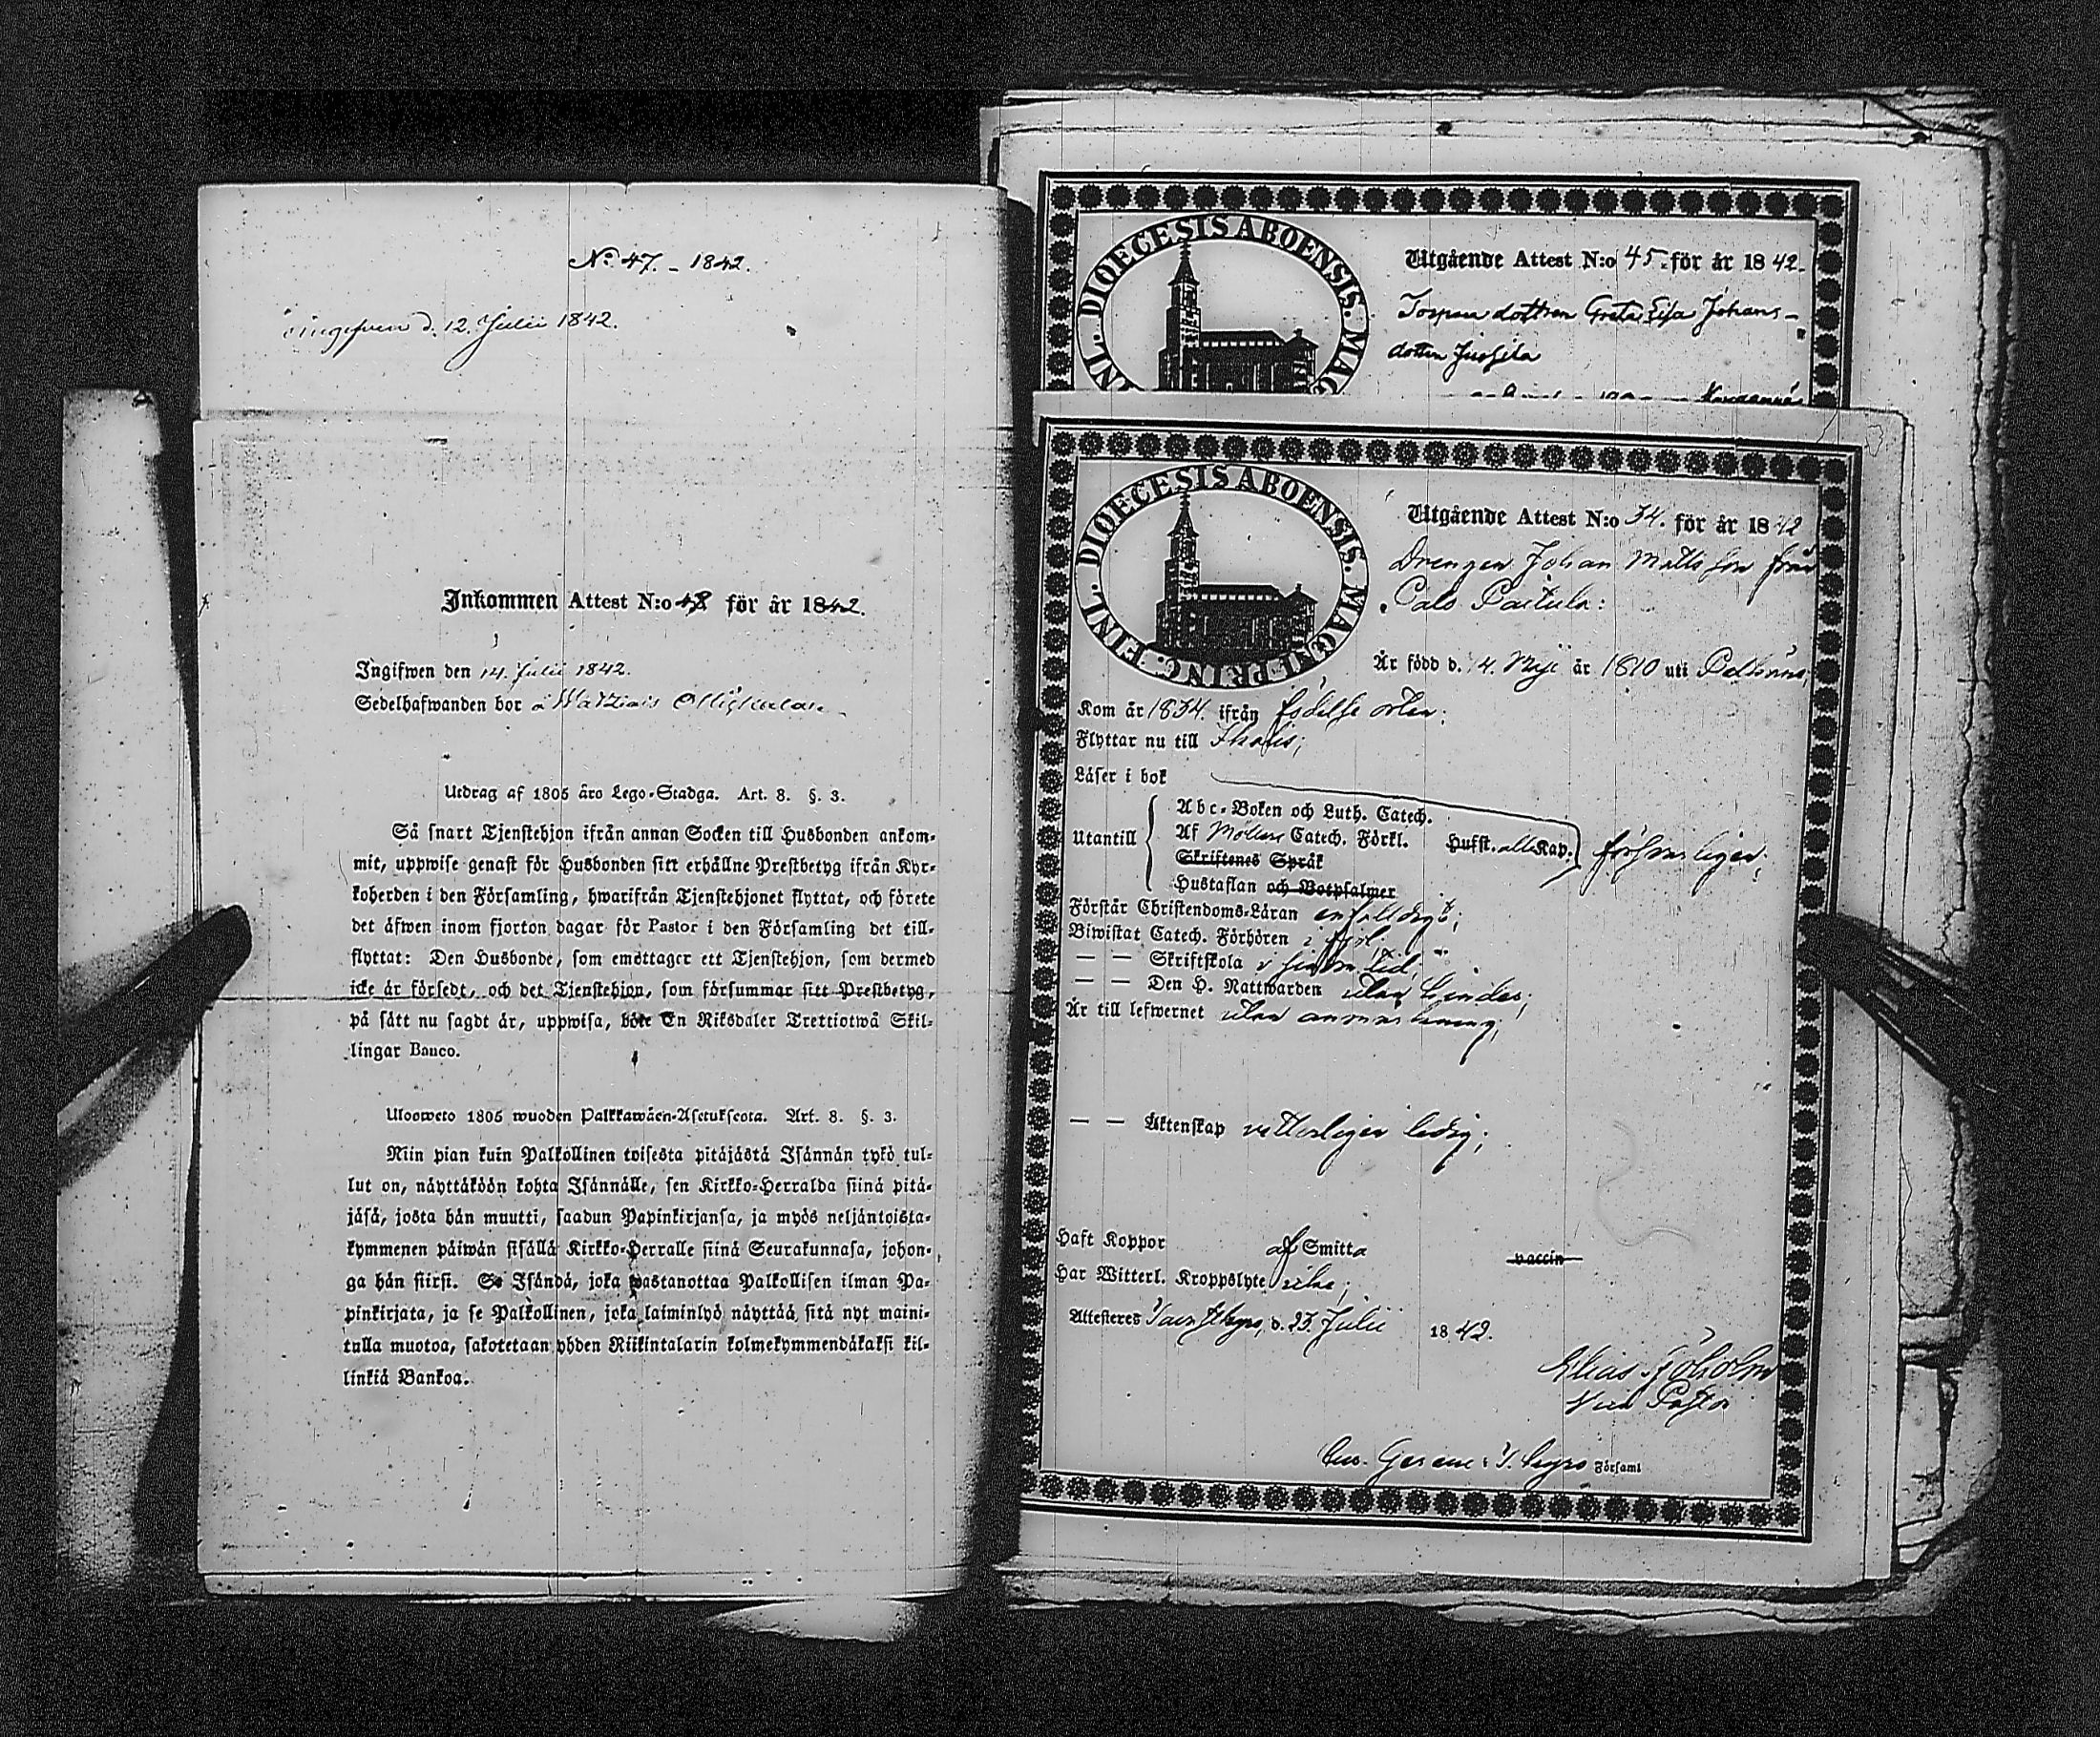 N:o 47. - 1842.
ingifven d. 12. Julii 1842.
Inkommen Attest N:o 48 för år 1842.
Ingifwen den 14. Julii 1842.
Sedelhafwanden bor å
Utdrag af 1805 års Lego-Stadga. Art. 8. §. 3.
Så snart Tjenstehjon ifrån annan Socken till Husbonden ankom-
mit, uppwise genast för Husbonden sitt erhållne Prestbetyg ifrån Kyr-
koherden i den Församling, hwarifrån Tjenstehjonet flyttat, och förete
det äfwen inom fjorton dagar för Pastor i den Församling det till-
flyttat: Den Husbonde, som emottager ett Tjenstehjon, som dermed
icke är försedt, och det Tjenstehjon, som försummar sitt Prestbetyg,
på sätt nu sagdt är, uppwisa, böte En Riksdaler Trettiotwå Skil-
lingar Banco.
Ulosweto 1805 wuoden Palkkawäen-Asetuksesta. Art. 8. §. 3.
Niin pian kuin Palkollinen toisesta pitäjästä Isännän tykö tul-
lut on, näyttäköön kohta Isännälle, sen Kirkko-Herralda siinä pitä-
jäsä, josta hän muutti, saadun Papinkirjansa, ja myös neljäntoista-
kymmenen päiwän sisällä Kirkko-Herralle siinä Seurakunnasa, johon-
ga hän siirsi. Se Isändä, joka wastanottaa Palkollisen ilman Pa-
pinkirjata, ja se Palkollinen, joka laiminlyö näyttää, sitä nyt maini-
tulla muotoa, sakotetaan yhden Riikintalarin kolmekymmendäkaksi kil-
linkiä Bankoa.
DIOECESIS ABOENSIS. MAG. FINL.
Utgående Attest N:o 45. för år 1842.
Torpare dottren Greta Lisa Johans-
dotter Jussila
DIOECESIS ABOENSIS. MAGNI PRINC. FINL.
Utgående Attest N:o 34. för år 1842
Drengen Johan Mattsson från
Är född d. 4. Maji år 1810 uti
Kom år 1834. ifrån födelse orten;
Flyttar nu till Ikalis;
Läser i bok
Utantill
Abc-Boken och Luth. Catech.
Af Möllers Catech. Förkl. Husst. alla Kap:
Skriftenes Språk
Hustaflan och Botpsalmer
försvarligen;
Förstår Christendoms-Läran enfalldigt;
Biwistat Catech. Förhören i fjol;
— — Skriftskola i sin tid,
— — Den H. Nattwarden utan hinder;
Är till lefwernet utan anmärkning;
— — Äktenskap vitterligen ledig;
Haft Koppor af Smitta vaccin
Har Witterl. Kroppslyte icke;
Attesteres d. 23. Julii 1842.
Elias Sjöholm
Vice Pastor
Församl